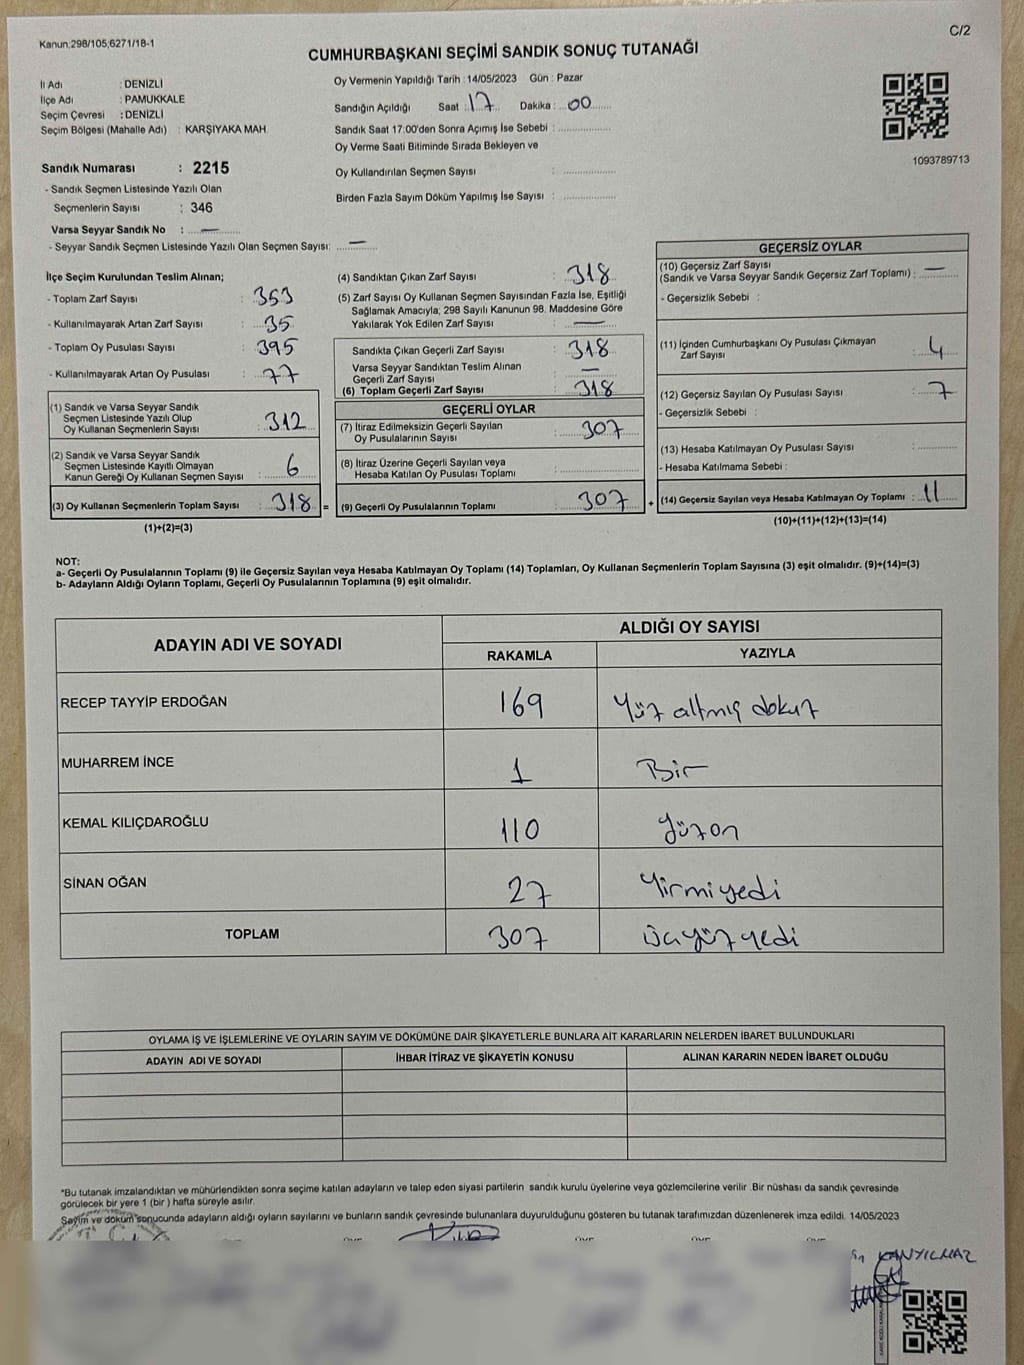 C/2
Kanun;298/105;6271/18-1
CUMHURBAŞKANI SEÇİMİ SANDIK SONUÇ TUTANAĞI
İl Adı : DENİZLİ
İlçe Adı : PAMUKKALE
Seçim Çevresi : DENİZLİ
Seçim Bölgesi (Mahalle Adı) : KARŞIYAKA MAH.
Oy Vermenin Yapıldığı Tarih : 14/05/2023 Gün : Pazar
Sandığın Açıldığı Saat : 17 Dakika : 00
Sandık Saat 17:00'den Sonra Açımış İse Sebebi :
Oy Verme Saati Bitiminde Sırada Bekleyen ve
Oy Kullandırılan Seçmen Sayısı :
Birden Fazla Sayım Döküm Yapılmış İse Sayısı :
1093789713
Sandık Numarası : 2215
- Sandık Seçmen Listesinde Yazılı Olan
Seçmenlerin Sayısı : 346
Varsa Seyyar Sandık No : —
- Seyyar Sandık Seçmen Listesinde Yazılı Olan Seçmen Sayısı: —
İlçe Seçim Kurulundan Teslim Alınan;
- Toplam Zarf Sayısı : 353
- Kullanılmayarak Artan Zarf Sayısı : 35
- Toplam Oy Pusulası Sayısı : 395
- Kullanılmayarak Artan Oy Pusulası : 77
(1) Sandık ve Varsa Seyyar Sandık
Seçmen Listesinde Yazılı Olup
Oy Kullanan Seçmenlerin Sayısı : 312
(2) Sandık ve Varsa Seyyar Sandık
Seçmen Listesinde Kayıtlı Olmayan
Kanun Gereği Oy Kullanan Seçmen Sayısı : 6
(3) Oy Kullanan Seçmenlerin Toplam Sayısı : 318 =
(1)+(2)=(3)
(4) Sandıktan Çıkan Zarf Sayısı : 318
(5) Zarf Sayısı Oy Kullanan Seçmen Sayısından Fazla İse, Eşitliği
Sağlamak Amacıyla; 298 Sayılı Kanunun 98. Maddesine Göre
Yakılarak Yok Edilen Zarf Sayısı : —
Sandıkta Çıkan Geçerli Zarf Sayısı : 318
Varsa Seyyar Sandıktan Teslim Alınan
Geçerli Zarf Sayısı : —
(6) Toplam Geçerli Zarf Sayısı : 318
GEÇERLİ OYLAR
(7) İtiraz Edilmeksizin Geçerli Sayılan
Oy Pusulalarının Sayısı : 307
(8) İtiraz Üzerine Geçerli Sayılan veya
Hesaba Katılan Oy Pusulası Toplamı :
(9) Geçerli Oy Pusulalarının Toplamı : 307 +
GEÇERSİZ OYLAR
(10) Geçersiz Zarf Sayısı
(Sandık ve Varsa Seyyar Sandık Geçersiz Zarf Toplamı) : —
- Geçersizlik Sebebi :
(11) İçinden Cumhurbaşkanı Oy Pusulası Çıkmayan
Zarf Sayısı : 4
(12) Geçersiz Sayılan Oy Pusulası Sayısı : 7
- Geçersizlik Sebebi :
(13) Hesaba Katılmayan Oy Pusulası Sayısı :
- Hesaba Katılmama Sebebi :
(14) Geçersiz Sayılan veya Hesaba Katılmayan Oy Toplamı : 11
(10)+(11)+(12)+(13)=(14)
NOT:
a- Geçerli Oy Pusulalarının Toplamı (9) ile Geçersiz Sayılan veya Hesaba Katılmayan Oy Toplamı (14) Toplamları, Oy Kullanan Seçmenlerin Toplam Sayısına (3) eşit olmalıdır. (9)+(14)=(3)
b- Adayların Aldığı Oyların Toplamı, Geçerli Oy Pusulalarının Toplamına (9) eşit olmalıdır.
ADAYIN ADI VE SOYADI ALDIĞI OY SAYISI
RAKAMLA YAZIYLA
RECEP TAYYİP ERDOĞAN 169 Yüz altmış dokuz
MUHARREM İNCE 1 Bir
KEMAL KILIÇDAROĞLU 110 Yüzon
SİNAN OĞAN 27 Yirmiyedi
TOPLAM 307 Üçyüzyedi
OYLAMA İŞ VE İŞLEMLERİNE VE OYLARIN SAYIM VE DÖKÜMÜNE DAİR ŞİKAYETLERLE BUNLARA AİT KARARLARIN NELERDEN İBARET BULUNDUKLARI
ADAYIN ADI VE SOYADI İHBAR İTİRAZ VE ŞİKAYETİN KONUSU ALINAN KARARIN NEDEN İBARET OLDUĞU
*Bu tutanak imzalandıktan ve mühürlendikten sonra seçime katılan adayların ve talep eden siyasi partilerin sandık kurulu üyelerine veya gözlemcilerine verilir .Bir nüshası da sandık çevresinde
görülecek bir yere 1 (bir ) hafta süreyle asılır.
Sayım ve döküm sonucunda adayların aldığı oyların sayılarını ve bunların sandık çevresinde bulunanlara duyurulduğunu gösteren bu tutanak tarafımızdan düzenlenerek imza edildi. 14/05/2023
KANYILMAZ